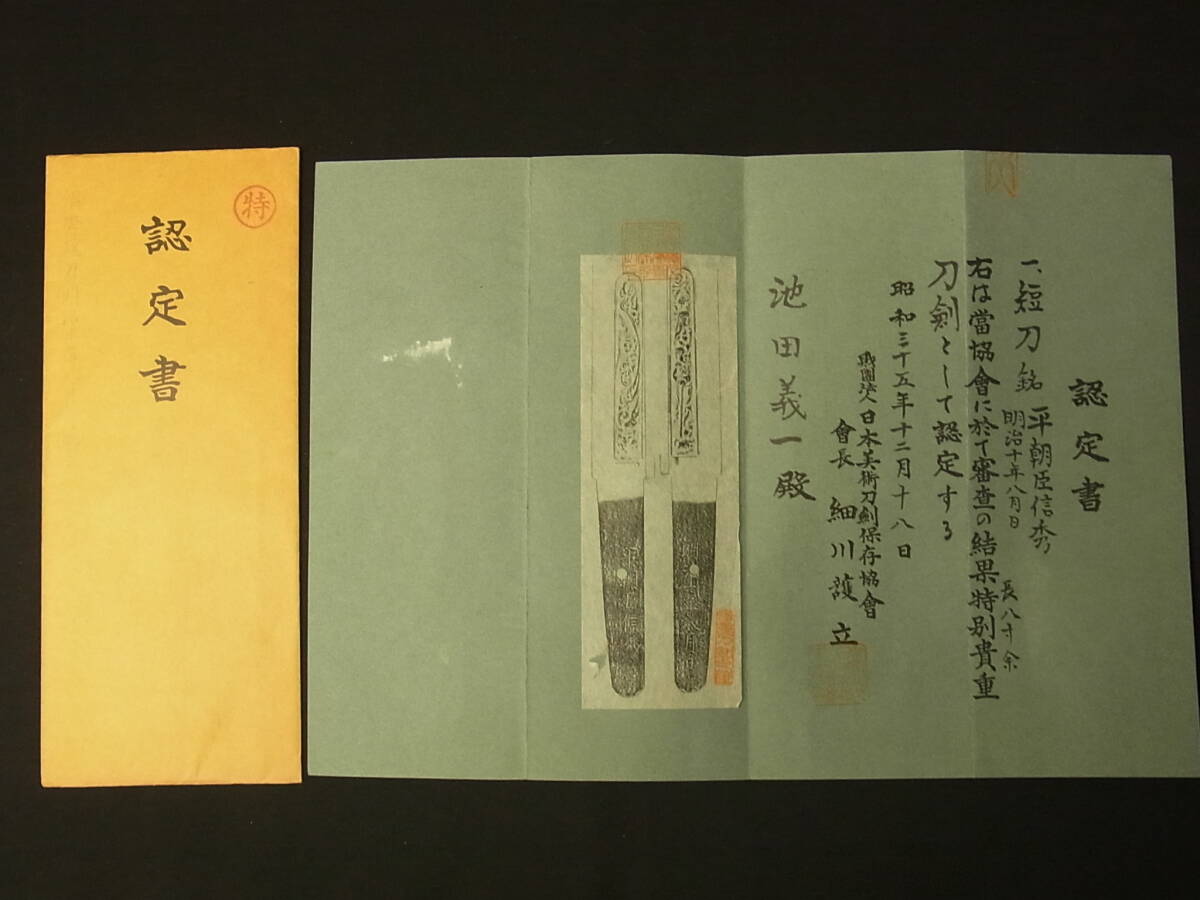 認定書
一、短刀 銘 平朝臣信秀
明治十年八月日
長八寸余
右は當協會に於て審査の結果特別貴重
刀劍として認定する
昭和三十五年十二月十八日
財團法人日本美術刀劍保存協會
會長 細川護立
池田義一殿
特
認定書